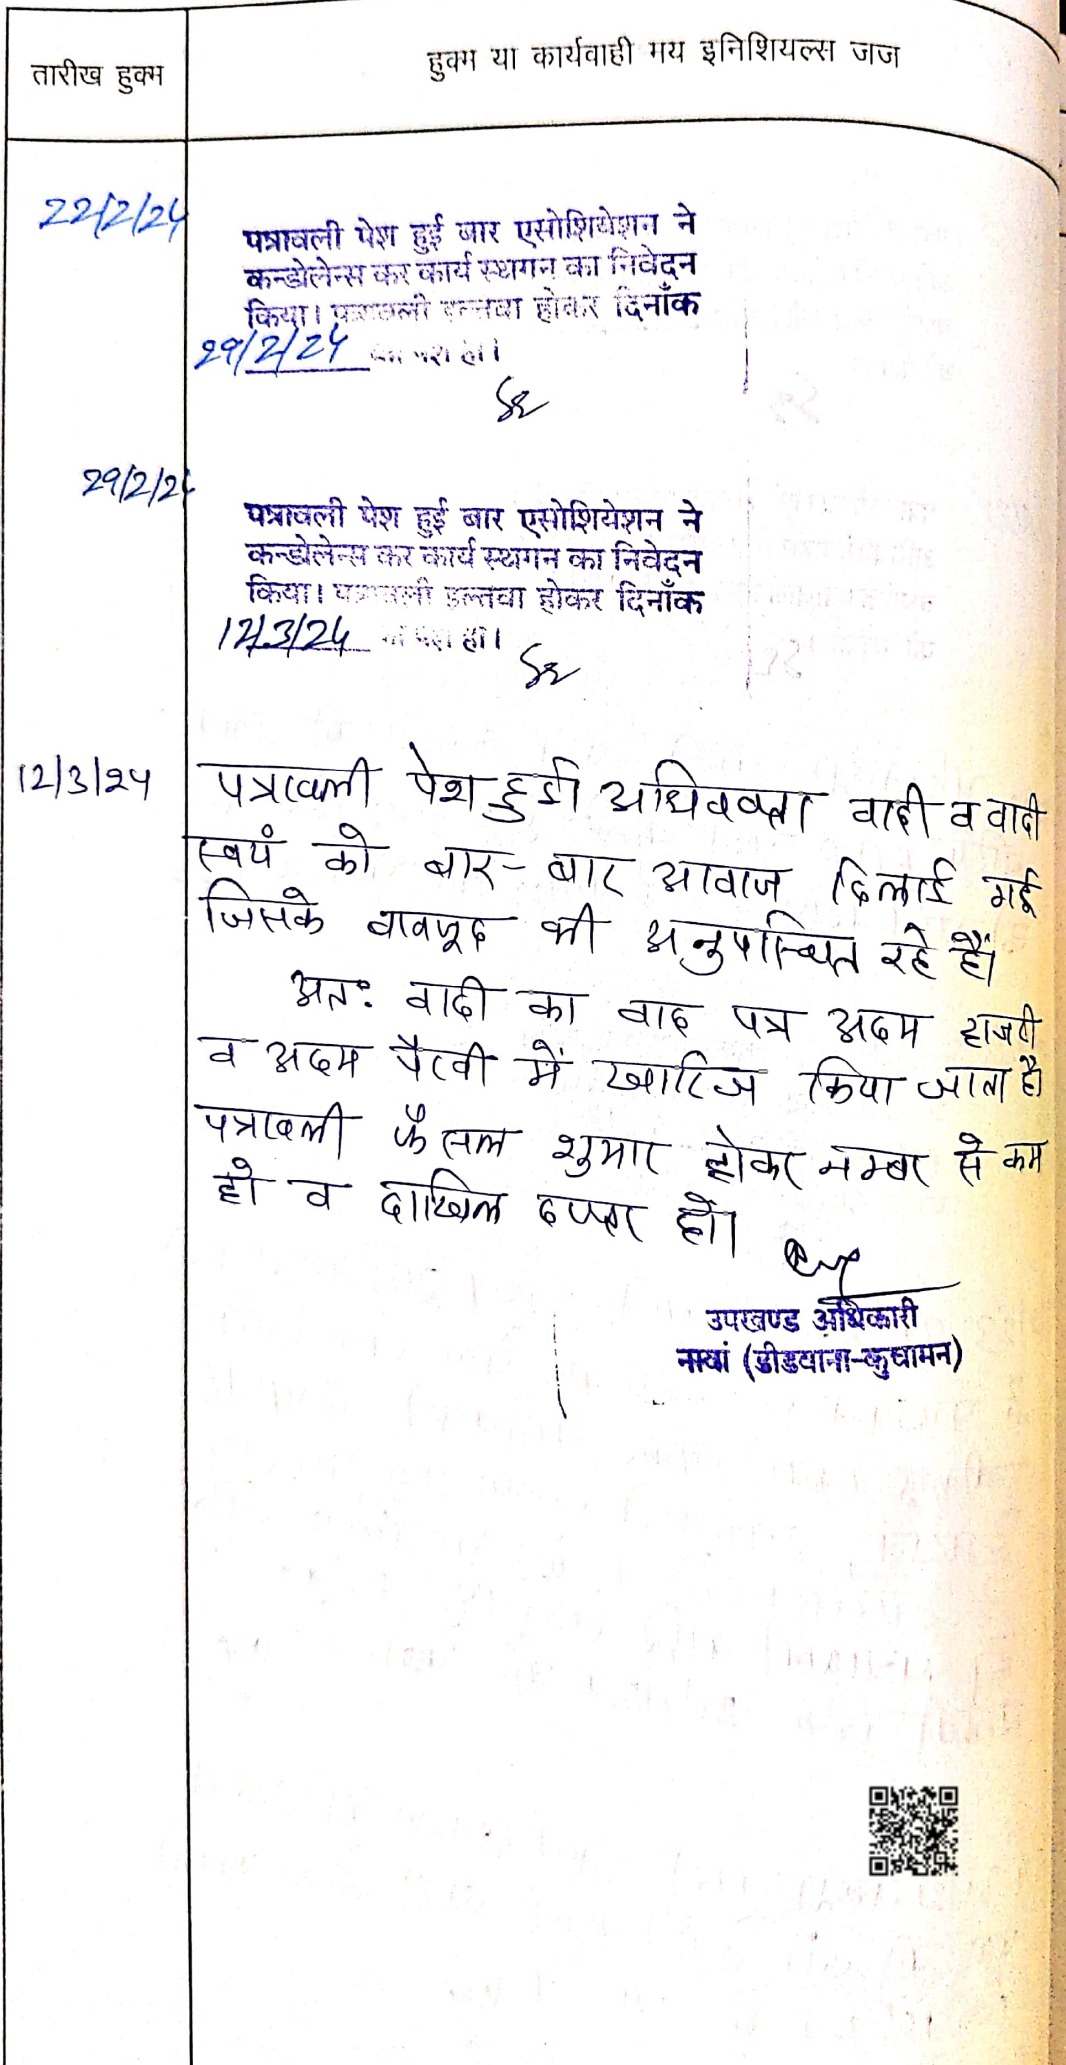 तारीख हुक्म
हुक्म या कार्यवाही मय इनिशियल्स जज
22/2/24
पत्रावली पेश हुई बार एसोशियेशन ने
कन्डोलेन्स कर कार्य स्थगन का निवेदन
किया। पत्रावली इल्तवा होकर दिनाँक
29/2/24 को पेश हो।
29/2/24
पत्रावली पेश हुई बार एसोशियेशन ने
कन्डोलेन्स कर कार्य स्थगन का निवेदन
किया। पत्रावली इल्तवा होकर दिनाँक
12/3/24 को पेश हो।
12/3/24
पत्रावली पेश हुई। अधिवक्ता वादी व वादी
स्वयं को बार-बार आवाज दिलाई गई
जिसके बावजूद भी अनुपस्थित रहे हैं।
अतः वादी का वाद पत्र अदम हाजरी
व अदम पैरवी में खारिज किया जाता है।
पत्रावली फैसल शुमार होकर नम्बर से कम
हो व दाखिल दफ्तर हों।
उपखण्ड अधिकारी
नावां (डीडवाना-कुचामन)